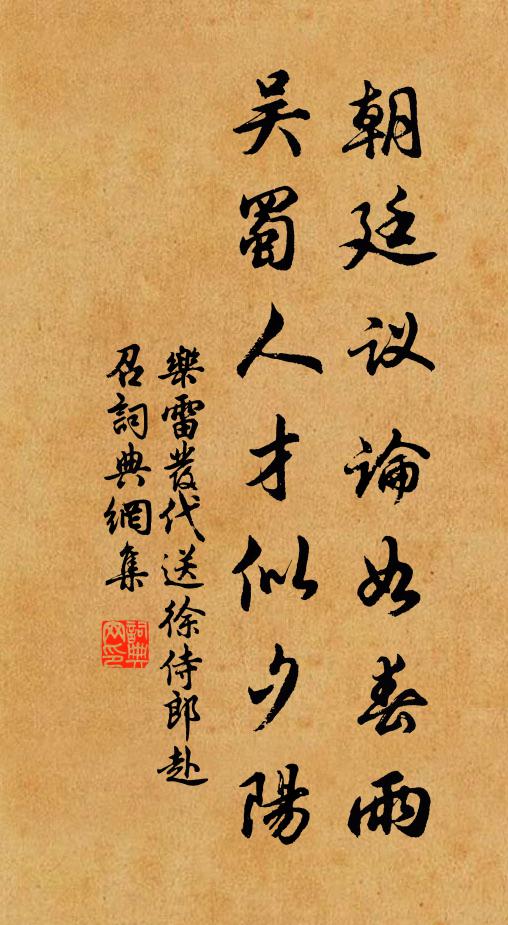 朝廷议論如春雨
吴蜀人才似夕陽
樂雷發代送徐侍郎赴
召詞典網集
詞典
网印